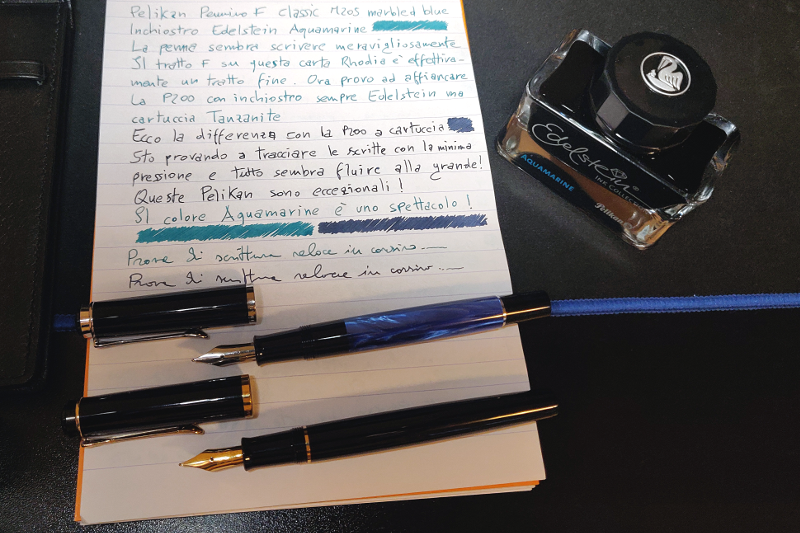 Pelikan Pennino F Classic M205 marbled blue
Inchiostro Edelstein Aquamarine
La penna sembra scrivere meravigliosamente
Il tratto F su questa carta Rhodia è effettiva-
mente un tratto fine. Ora provo ad affiancare
La P200 con inchiostro sempre Edelstein ma
cartuccia Tanzanite
Ecco la differenza con la P200 a cartuccia
Sto provando a tracciare le scritte con la minima
pressione e tutto sembra fluire alla grande!
Queste Pelikan sono eccezionali!
Il colore Aquamarine è uno spettacolo!
Prova di scrittura veloce in corsivo
Prova di scrittura veloce in corsivo
Edelstein
INK COLLECTION
AQUAMARINE
Pelikan